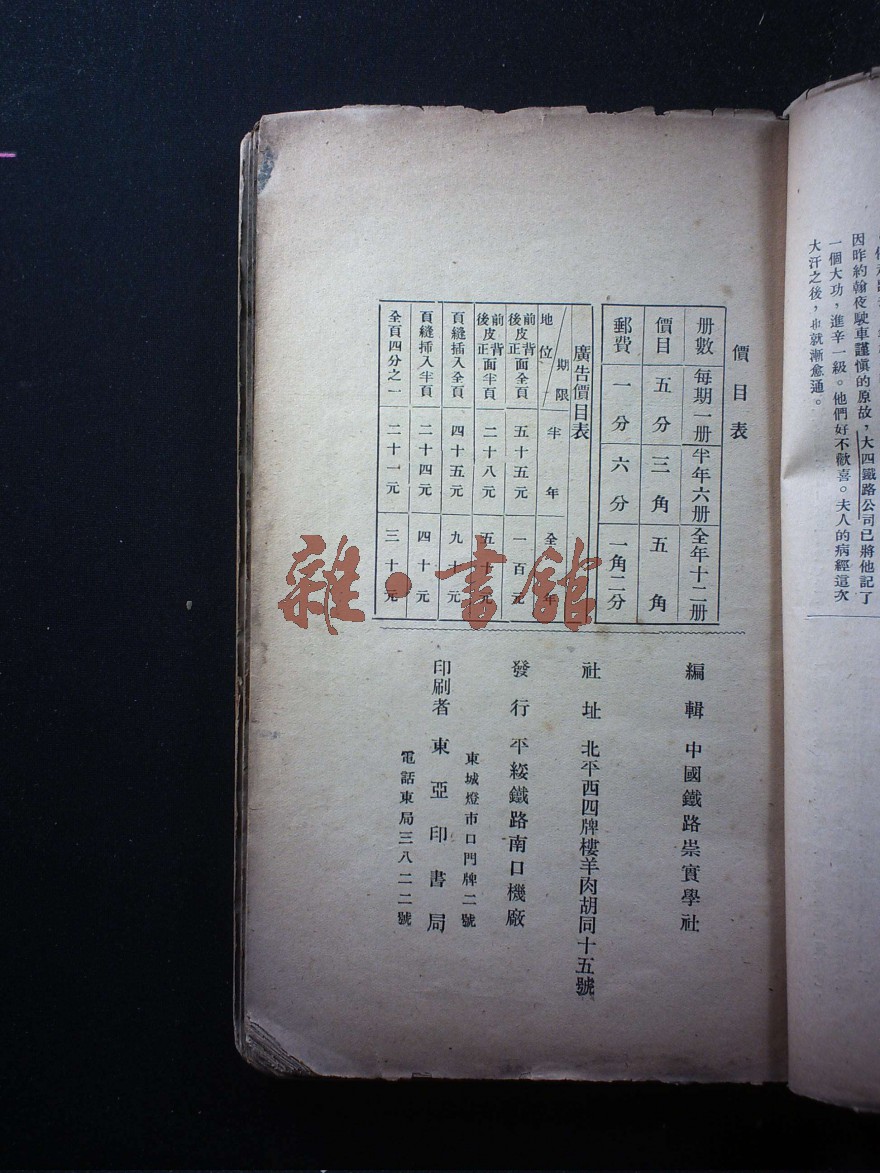 大汗之後，也就漸愈通。
一個大功，進辛一級。他們好不歡喜。夫人的病經這次
因昨約翰夜駛車謹慎的原故，大四鐵路公司已將他記了
價目表
册數 每期一册 半年六册 全年十二册
價目 五分 三角 五角
郵費 一分 六分 一角二分
廣告價目表
地位 期限 半年 全年
前皮背面全頁 後皮正面全頁 五十五元 一百元
前皮背面半頁 後皮正面半頁 二十八元 五十元
頁縫插入全頁 四十五元 九十元
頁縫挿入半頁 二十四元 四十元
全頁四分之一 二十一元 三十元
編輯 中國鐵路崇實學社
社址 北平西四牌樓羊肉胡同十五號
發行 平綏鐵路南口機廠
東城燈市口門牌二號
印刷者 東亞印書局
電話東局三八二二號
雜·書館